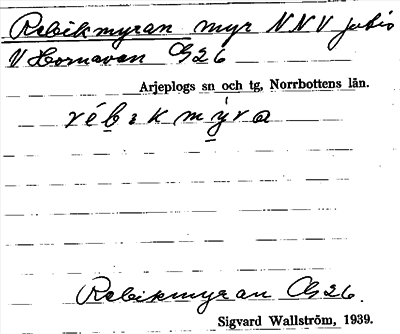 Rebikmyran myr NNV
V Hornavan G26
Arjeplogs sn och tg, Norrbottens län.
rébıkmýra
Rebikmyran G26.
Sigvard Wallström, 1939.